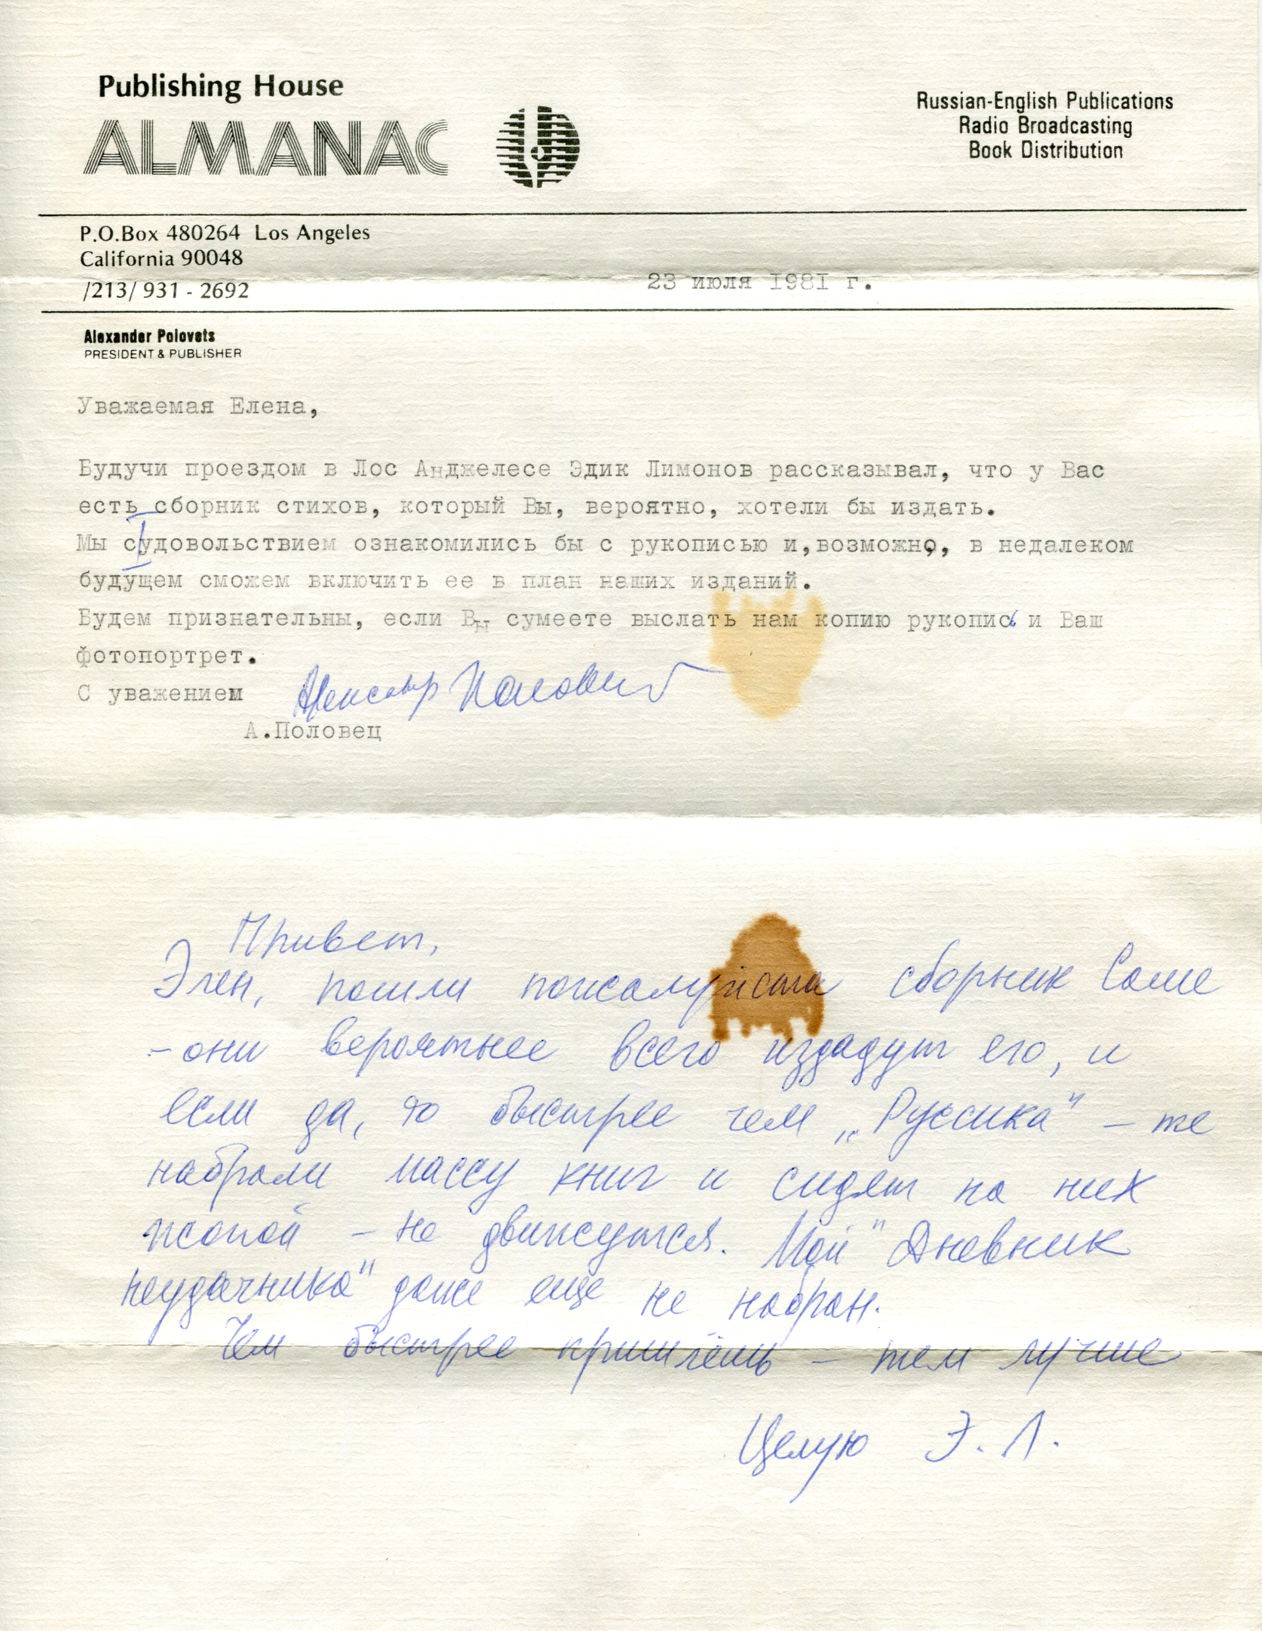 Publishing House
ALMANAC
Russian-English Publications
Radio Broadcasting
Book Distribution
P.O.Box 480264 Los Angeles
California 90048
/213/ 931 - 2692
23 июля I98I г.
Alexander Polovets
PRESIDENT & PUBLISHER
Уважаемая Елена,
Будучи проездом в Лос Анджелесе Эдик Лимонов рассказывал, что у Вас
есть сборник стихов, который Вы, вероятно, хотели бы издать.
Мы судовольствием ознакомились бы с рукописью и,возможно, в недалеком
будущем сможем включить ее в план наших изданий.
Будем признательны, если Вы сумеете выслать нам копию рукописи и Ваш
фотопортрет.
С уважением Александр Половец
А.Половец
Привет,
Элен, пошли пожалуйста сборник Саше
- они вероятнее всего издадут его, и
если да, то быстрее чем „Руссика" - те
набрали массу книг и сидят на них
жопой - не движутся. Мой "Дневник
неудачника" даже еще не набран.
Чем быстрее пришлёшь - тем лучше
Целую Э. Л.